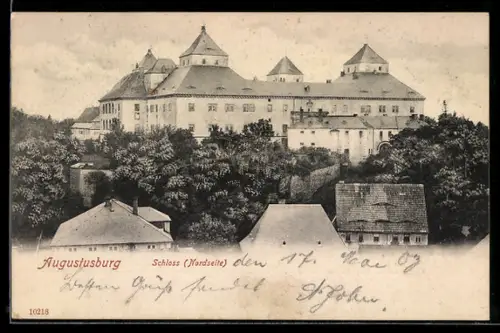 Augustusburg Schloss (Nordseite) den 17. Mai 03
Besten Gruß sendet
10218